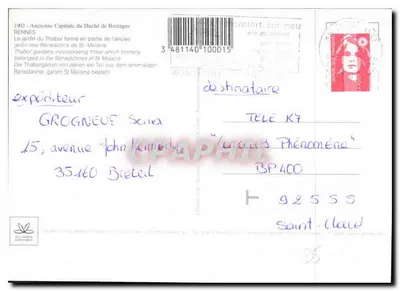 1902 - Ancienne Capitale du Duché de Bretagne
RENNES
Le jardin du Thabor formé en partie de l'ancien
jardin des Bénédictins de St. Melaine
Thabor gardens incorporating those which formerly
belonged to the Bénédictins of St Melaine
Die Thaborgarten von jeinen ein Teil aus dem ehemaligen
Benediktiner garten St Melaine besteht
3 481140 100015
expéditeur
GROGNEUF
15, avenue John Kennedy
35160 Breteil
destinataire
TELE K7
"concours Phénomène"
BP 400
92555
Saint-Cloud
CPAPHIL
35